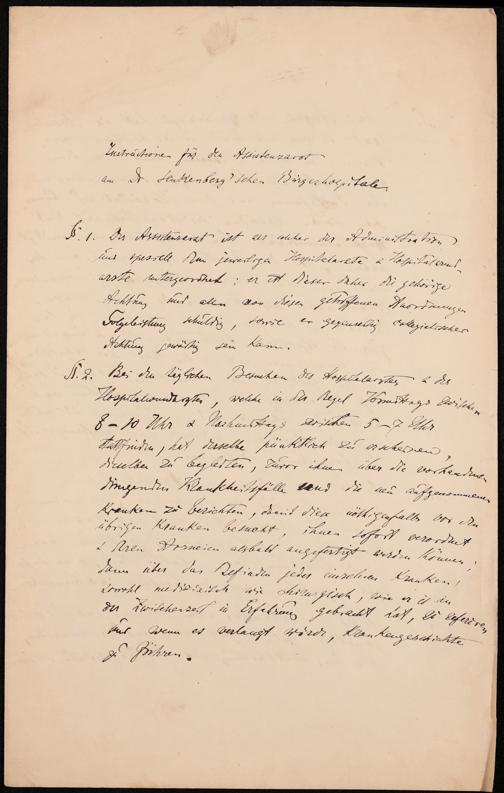 Instruction für den Assistenzarzt
am Dr Senckenberg'schen Bürgerhospitale.
§. 1. Der Assistenzarzt ist der Administration
und speciell dem jeweiligen Hospitalarzte & Hospitalwund-
arzte untergeordnet; er ist dieser daher die gehörige
Achtung und allen von dieser getroffenen Anordnungen
Folgeleistung schuldig, sowie er gegenseitig collegialischer
Achtung gewärtig sein kann.
§. 2. Bei den täglichen Besuchen des Hospitalarztes & des
Hospitalwundarztes, welche in der Regel Vormittags zwischen
8–10 Uhr & Nachmittags zwischen 5–7 Uhr
stattfinden, hat derselbe pünktlich zu erscheinen,
dieselben zu begleiten, zuvor ihnen über die vorhandenen
dringenden Krankheitsfälle und die neu aufgenommenen
Kranken zu berichten, damit diese nöthigenfalls vor den
übrigen Kranken besucht, ihnen sofort verordnet
& ihre Arzneien alsbald angefertigt werden können;
dann über das Befinden jedes einzelnen Kranken,
sowohl medicinisch wie chirurgisch, wie er es in
der Zwischenzeit in Erfahrung gebracht hat, zu referiren
und wenn es verlangt würde, Krankengeschichte
zu führen.